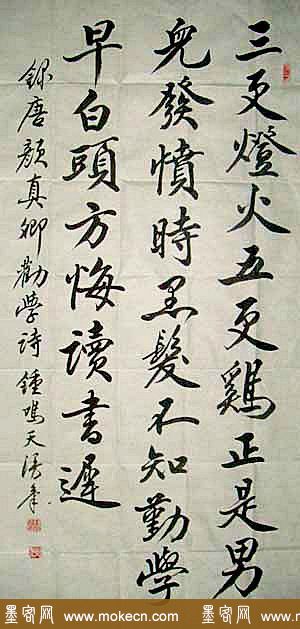 三更燈火五更鷄正是男
兒發憤時黑髮不知勤學
早白頭方悔讀書遲
錄唐顏真卿勸學詩 鍾鳴天
墨客网 www.mokecn.com 墨客网